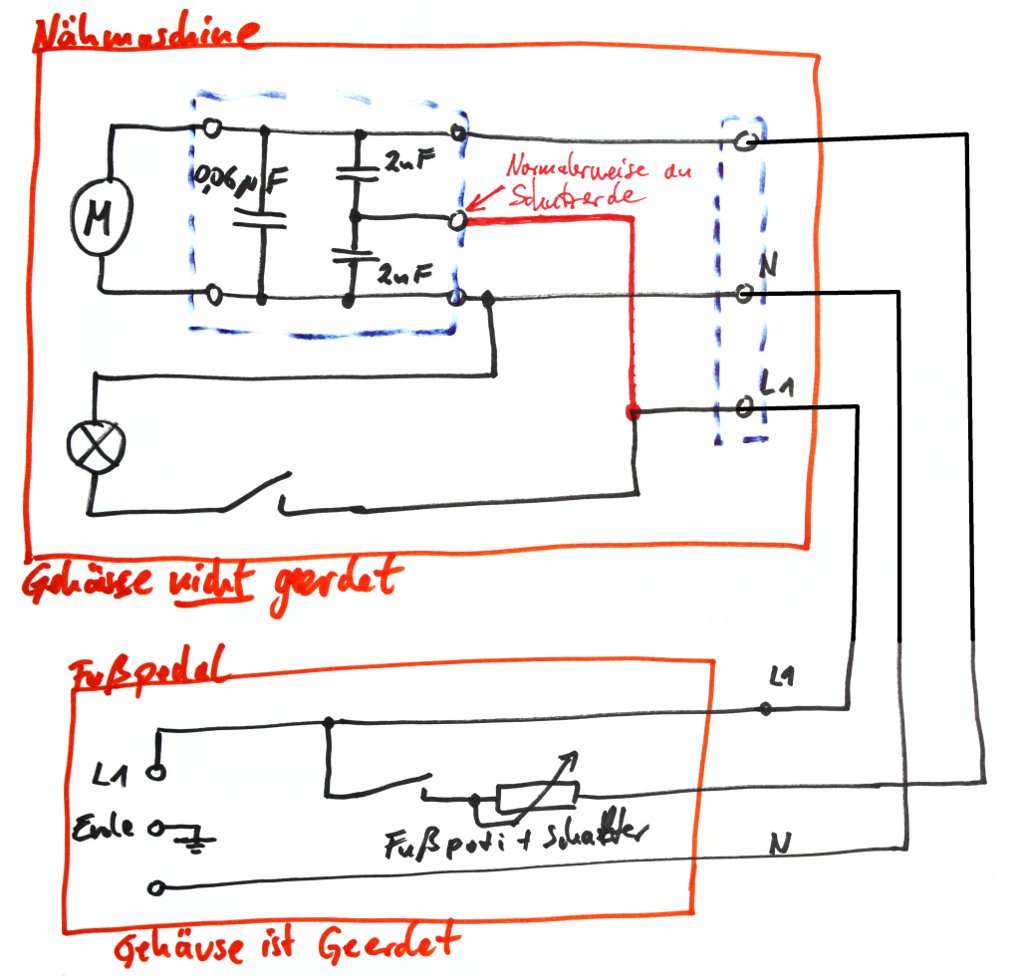 Nähmaschine
0,06µF
2nF
Normalerweise an
Schutzerde
M
2nF
N
L1
Gehässe nicht geerdet
Fußpedal
L1
L1
Erde
Fußpoti + Schalter
N
Gehäuse ist Geerdet